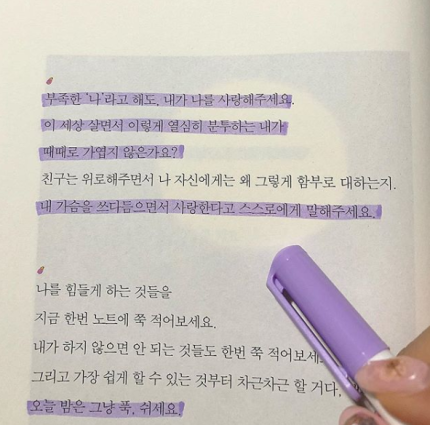 부족한 '나'라고 해도, 내가 나를 사랑해주세요.
이 세상 살면서 이렇게 열심히 분투하는 내가
때때로 가엽지 않은가요?
친구는 위로해주면서 나 자신에게는 왜 그렇게 함부로 대하는지.
내 가슴을 쓰다듬으면서 사랑한다고 스스로에게 말해주세요.
나를 힘들게 하는 것들을
지금 한번 노트에 쭉 적어보세요.
내가 하지 않으면 안 되는 것들도 한번 쭉 적어보세
그리고 가장 쉽게 할 수 있는 것부터 차근차근 할 거다,
오늘 밤은 그냥 푹, 쉬세요.